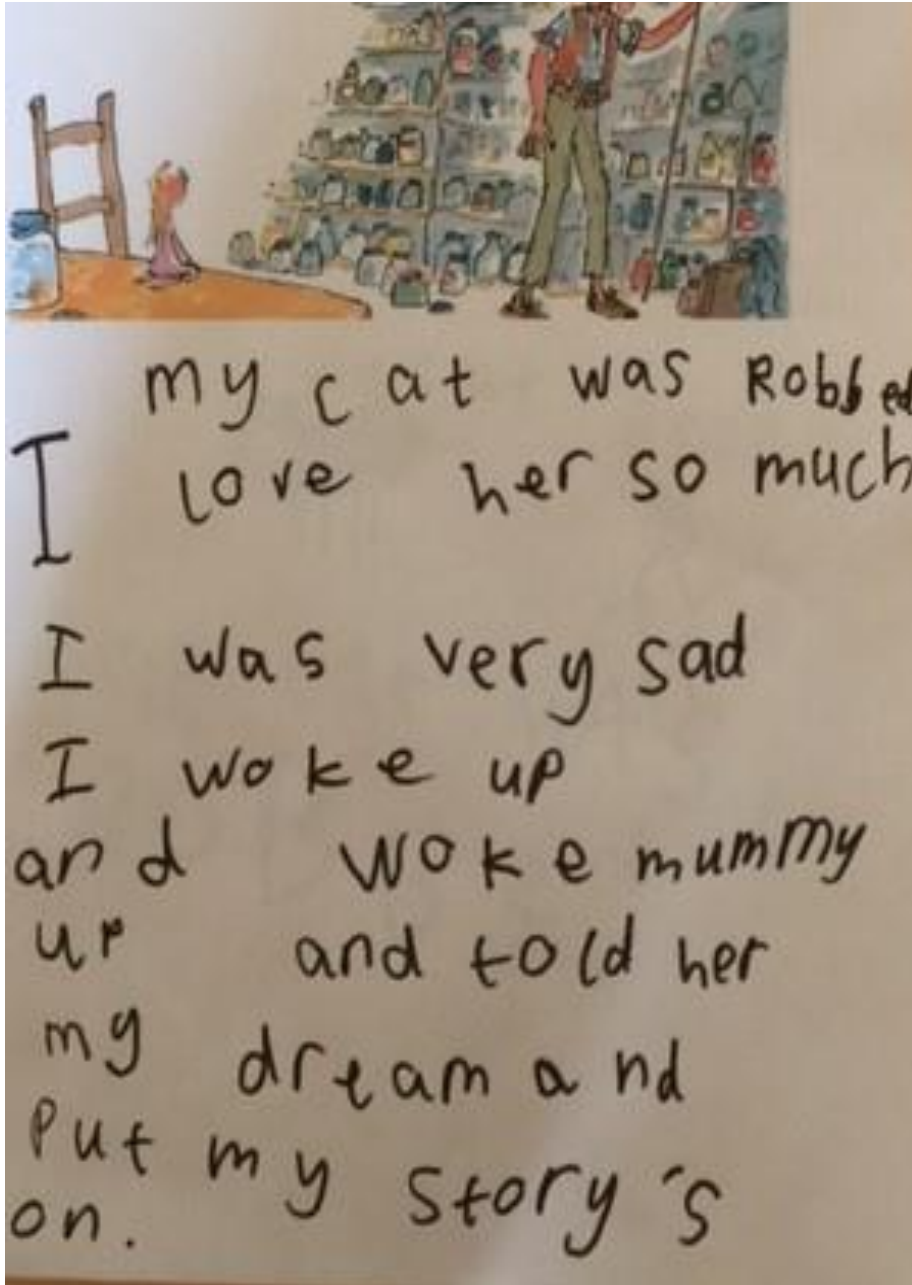 my cat was Robbed
I love her so much
I was very sad
I woke up
and woke mummy
up and told her
my dream and
Put my story's
on.